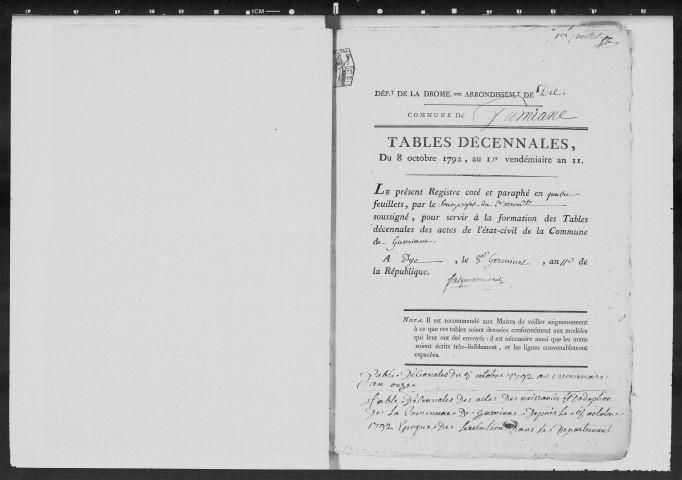 1er feuillet
DÉP.T DE LA DROME. = ARRONDISSEM.T DE Die
COMMUNE DE Gumiane
TABLES DÉCENNALES,
Du 8 octobre 1792, au 1.er vendémiaire an 11.
LE présent Registre coté et paraphé en quatre
feuillets, par le
soussigné, pour servir à la formation des Tables
décennales des actes de l'état-civil de la Commune
de Gumiane.
A Dye, le 8 Germinal, an 11e de
la République.
NOTA. Il est recommandé aux Maires de veiller soigneusement
à ce que ces tables soient dressées conformément aux modèles
qui leur ont été envoyés : il est nécessaire aussi que les noms
soient écrits très-lisiblement, et les lignes convenablement
espacées.
Table Décennales Du 8 octobre 1792 au 1 vendemiaire
an onze
Table Décennales Des actes Des naissances Et D'adoption
De La Commune De Gumiane Depuis Le 8 octobre
1792 Epoque De Dans Le Departement